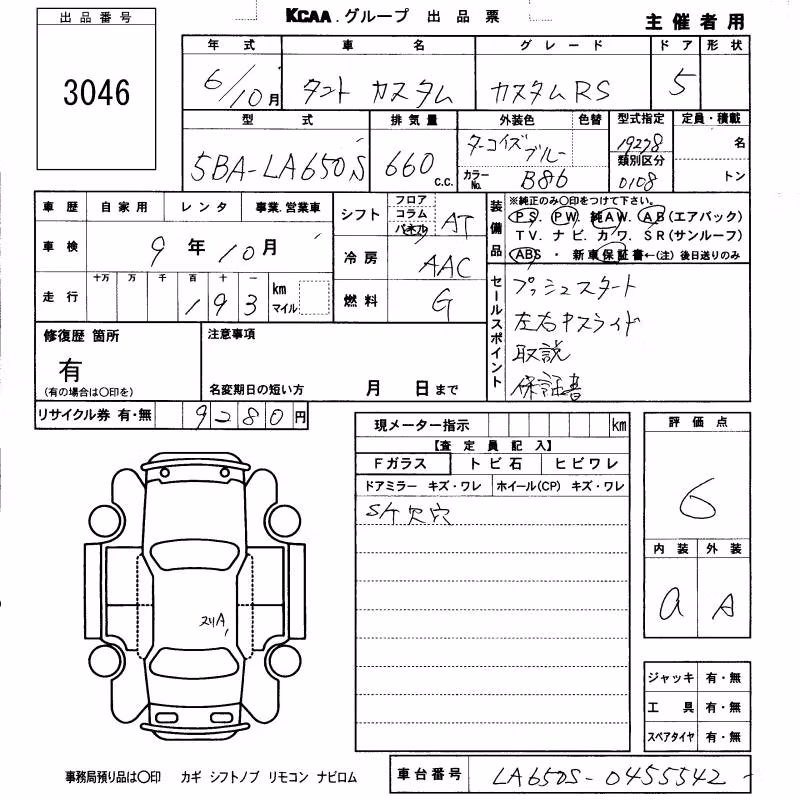 出品番号
3046
KCAA.グループ 出品票
主催者用
年式 車名 グレード ドア 形状
6/10月 タント カスタム カスタムRS 5
型式 排気量 外装色 色替 型式指定 定員・積載
5BA-LA650S 660 c.c. ターコイズブルー 19278 名
カラーNo. B86 類別区分 0108 トン
車歴 自家用 レンタ 事業.営業車
車検 9年10月
走行 十万 万 千 百 十 一
193 km マイル
シフト フロア コラム パネル AT
冷房 AAC
燃料 G
装備品 ※純正のみ〇印をつけて下さい。
PS. PW. 純AW. AB(エアバック)
TV. ナビ. カワ. SR(サンルーフ)
ABS ・ 新車保証書←(注) 後日送りのみ
セールスポイント
プッシュスタート
左右Pスライド
取説
保証書
修復歴 箇所
有
(有の場合は〇印を)
注意事項
名変期日の短い方 月 日まで
リサイクル券 有・無 9280円
現メーター指示 km
【査定員記入】
Fガラス トビ石 ヒビワレ
ドアミラー キズ・ワレ ホイール(CP) キズ・ワレ
Sケ欠穴
評価点
6
内装 外装
a A
ジャッキ 有・無
工具 有・無
スペアタイヤ 有・無
事務局預り品は〇印 カギ シフトノブ リモコン ナビロム
車台番号 LA650S-0455542